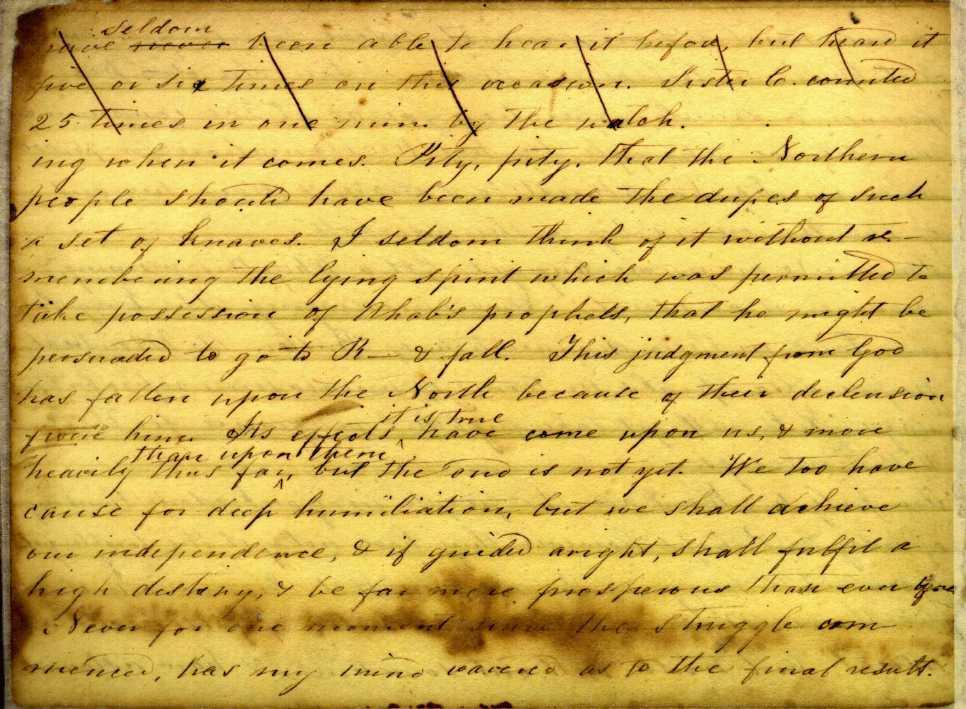 seldom
have never been able to hear it before, but heard it
five or six times on this occasion. Sister C. counted
25 times in one min. by the watch.
ing when it comes. Pity, pity, that the Northern
people should have been made the dupes of such
a set of knaves. I seldom think of it without re-
membering the lying spirit which was permitted to
take possession of Ahab's prophets, that he might be
persuaded to go to R— & fall. This judgment from God
has fallen upon the North because of their declension
it is true
from him. Its effects ^ have come upon us, & more
than upon them
heavily thus far, ^ but the end is not yet. We too have
cause for deep humiliation, but we shall achieve
our independence, & if guided aright, shall fulfil a
high destiny, & be far more prosperous than ever before
Never for one moment since the struggle com
menced, has my mind wavered as to the final result.